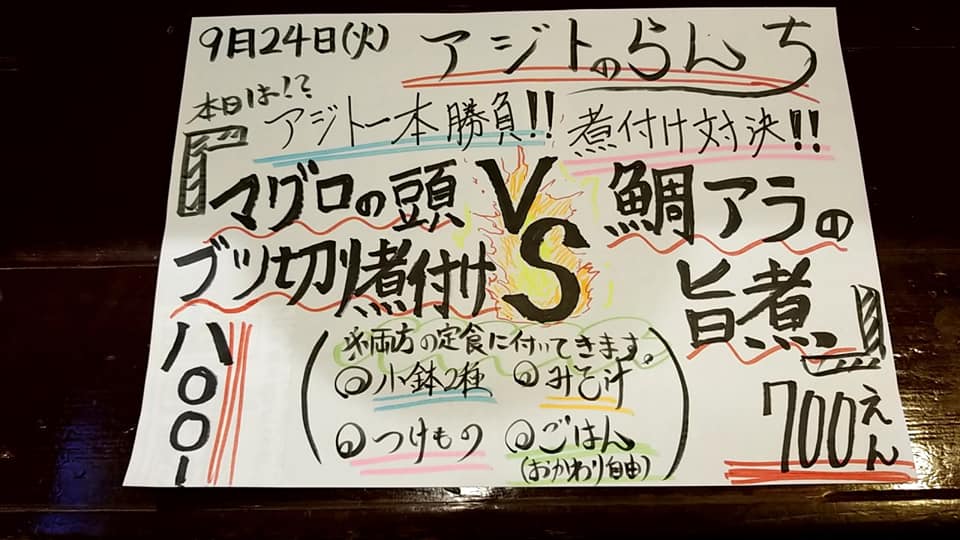 9月24日(火)
アジトのらんち
本日は!?
アジト一本勝負!!
煮付け対決!!
『マグロの頭
ブツ切り煮付け
八〇〇-
VS
鯛アラの
旨煮』
700えん
(※両方の定食に付いてきます。
◎小鉢2種
◎みそ汁
◎つけもの
◎ごはん
(おかわり自由))